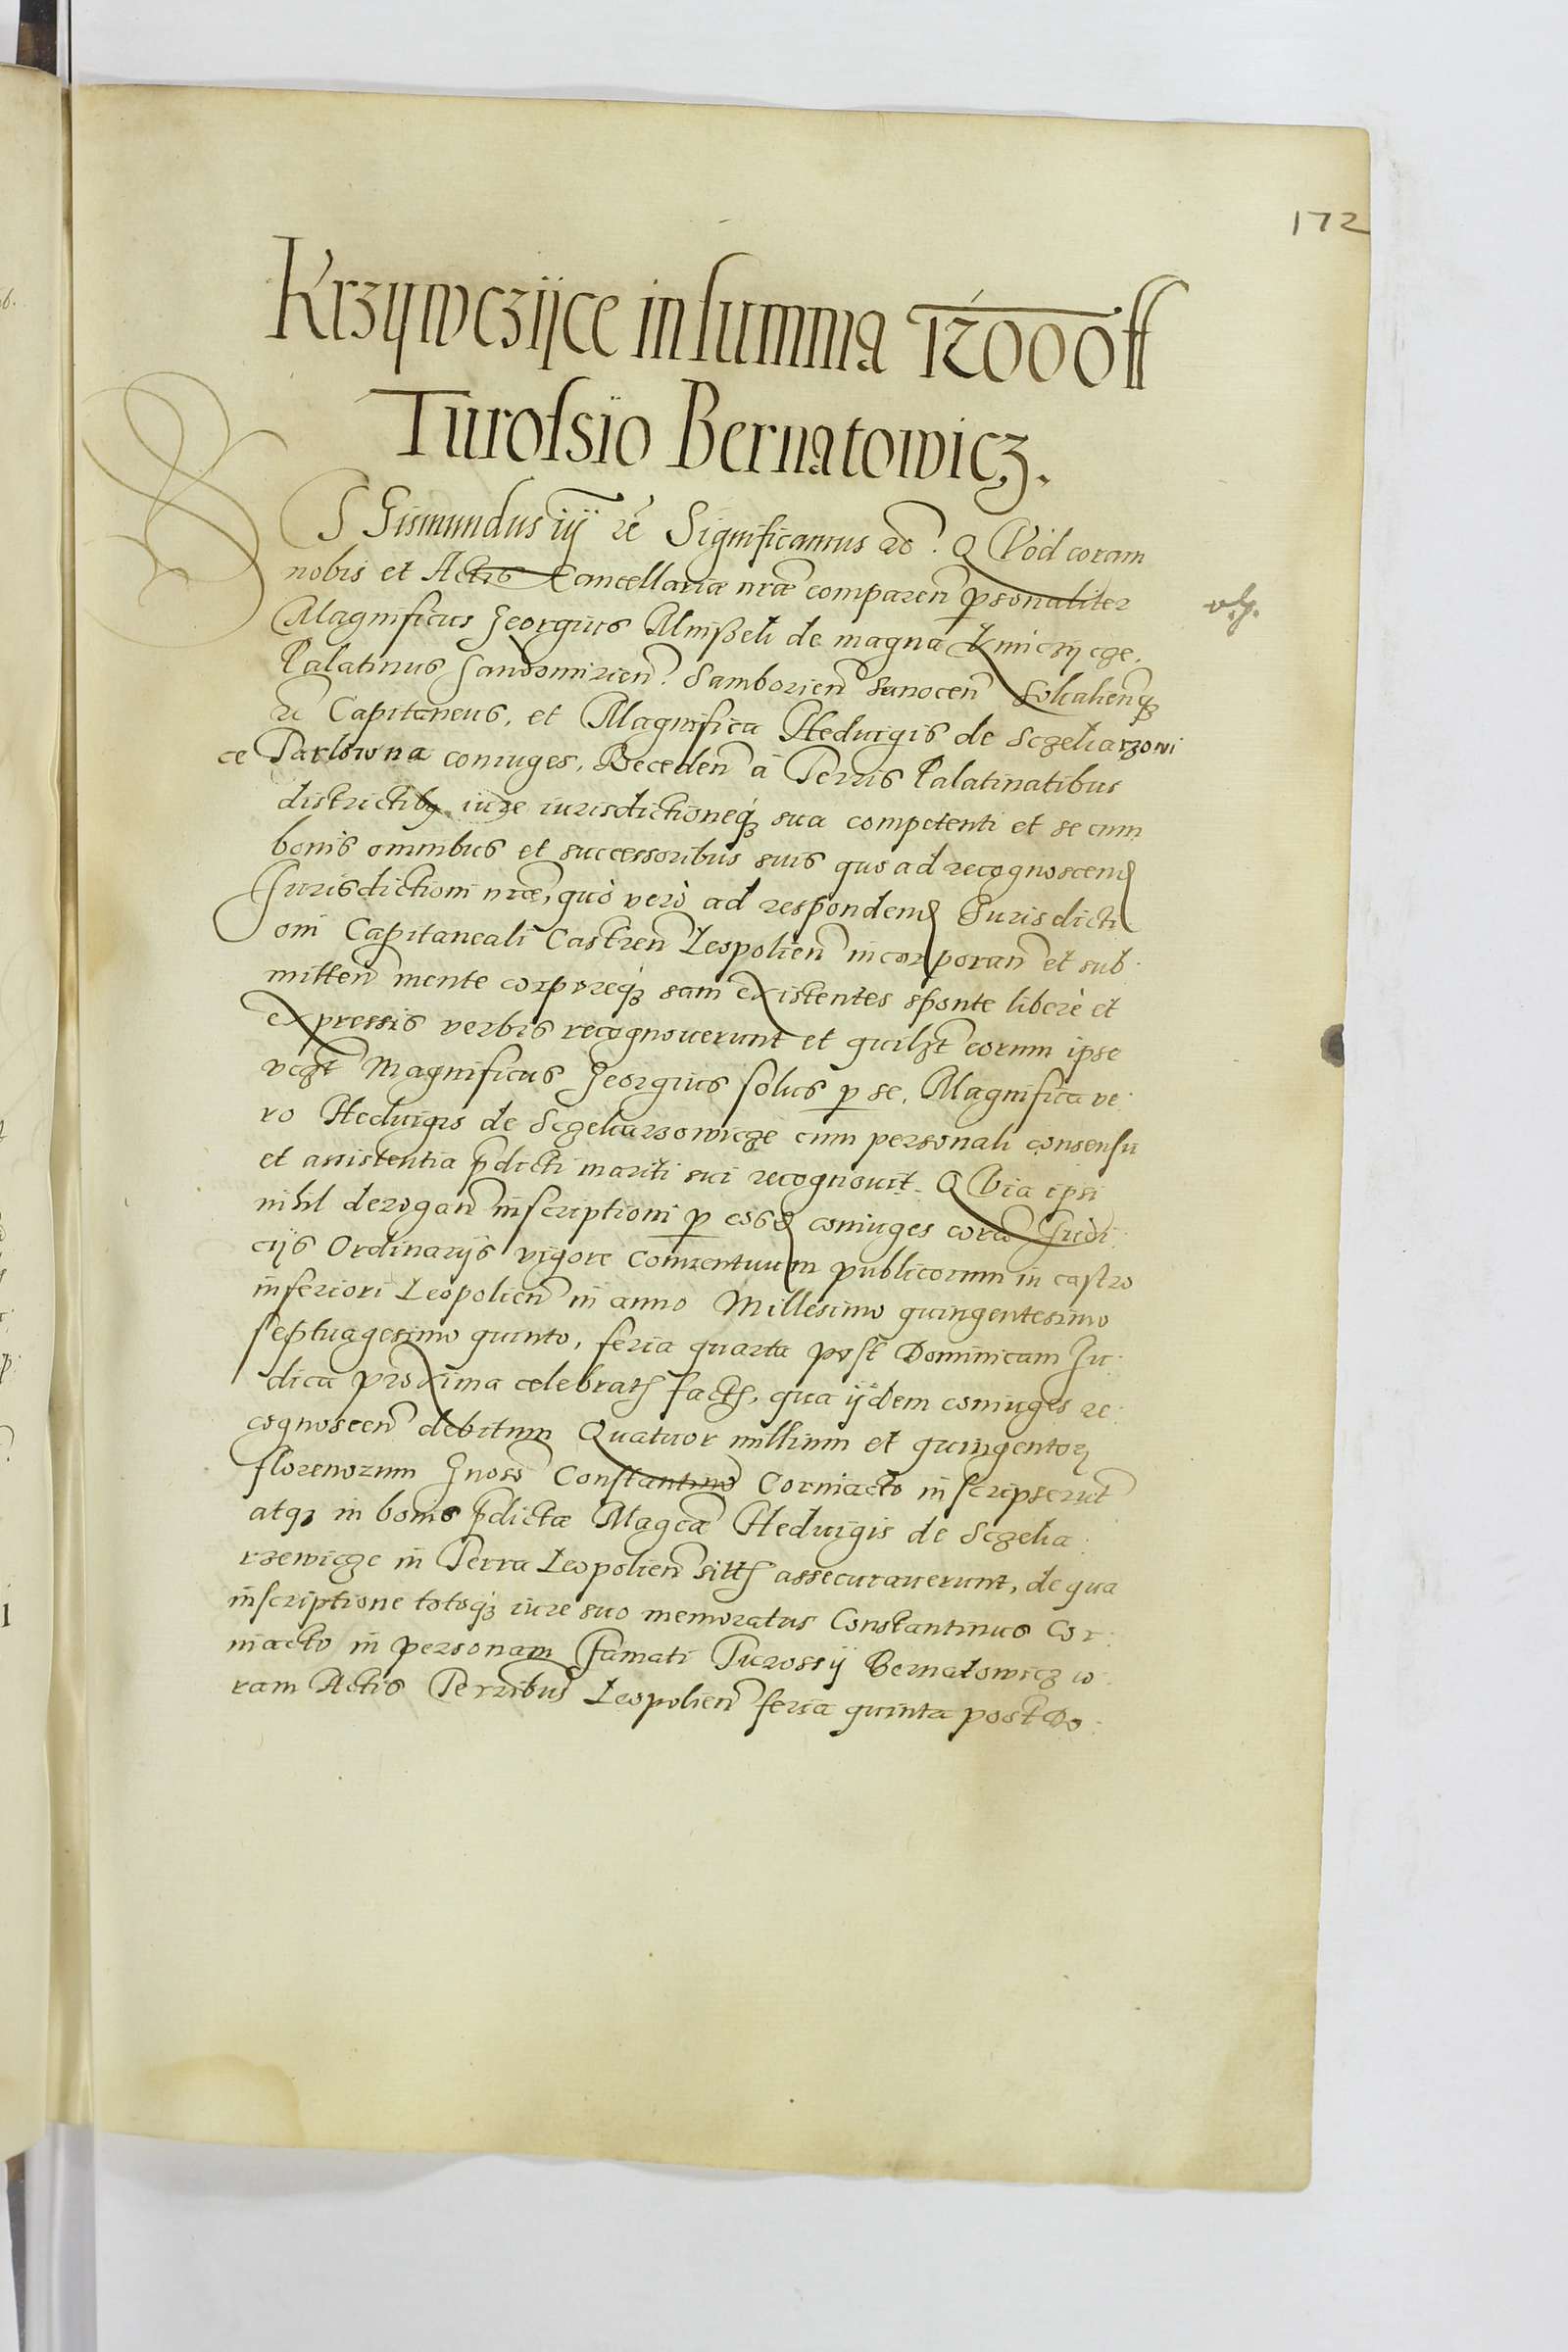 172
Krzywczijce in summa 12000 ff
Turofsio Bernatowicz.
SJgismundus iij rc̃ Significamus rc̃. QVod coram
nobis et Actis Cancellariæ nræ comparen̄ psonaliter
Magnificus Georgius Mnißeh de magna Kmicziicze.
Palatinus Sandomirien̄. Samborien̄ Sanocen̄ Sokalien̄q;
rc̃ Capitaneus, et Magnifica Heduigis de Sczeliarzowi
ce Tarlowna coniuges, Receden̄ à Terris Palatinatibus
districtibq; iure iurisdictioneq; sua competenti et se cum
bonis omnibus et successoribus suis quo ad recognoscend
Jurisdictioni nræ, quò verò ad respondend Jurisdicti
oni Capitaneali Castren̄ Leopolien̄ incorporan̄ et sub
mitten̄ mente corporeq; sani existentes sponte liberè et
expressis verbis recognouerunt et quilzt eorum ipse
vczt Magnificus Georgius solus p se, Magnifica ve
ro Heduigis de Sczeliarzowicze cum personali consensu
et assistentia pdicti mariti sui recognouit. QVia ipsi
nihil derogan̄ inscriptioni p eosd coniuges corā Judi
cijs Ordinarijs vigore Conuentuum publicorum in castro
inferiori Leopolien̄ in anno Millesimo quingentesimo
septuagesimo quinto, feria quarta post Dominicam Ju
dica proxima celebratȝ factȝ, qua ijdem coniuges re
cognoscen̄ debitum Quatuor millium et quingentoꝝ
florenorum Gnoso Constantino Corniacto inscripserūt
atq; in bonis pdictæ Magcæ Heduigis de Sczelia
rzewicze in Terra Leopolien̄ sittȝ assecurauerunt, de qua
inscriptione totoq; iure suo memoratus Constantinus Cor
niacto in personam Famati Turossij Bernatowicz co
ram Actis Terribus Leopolien̄ feria quinta post Do